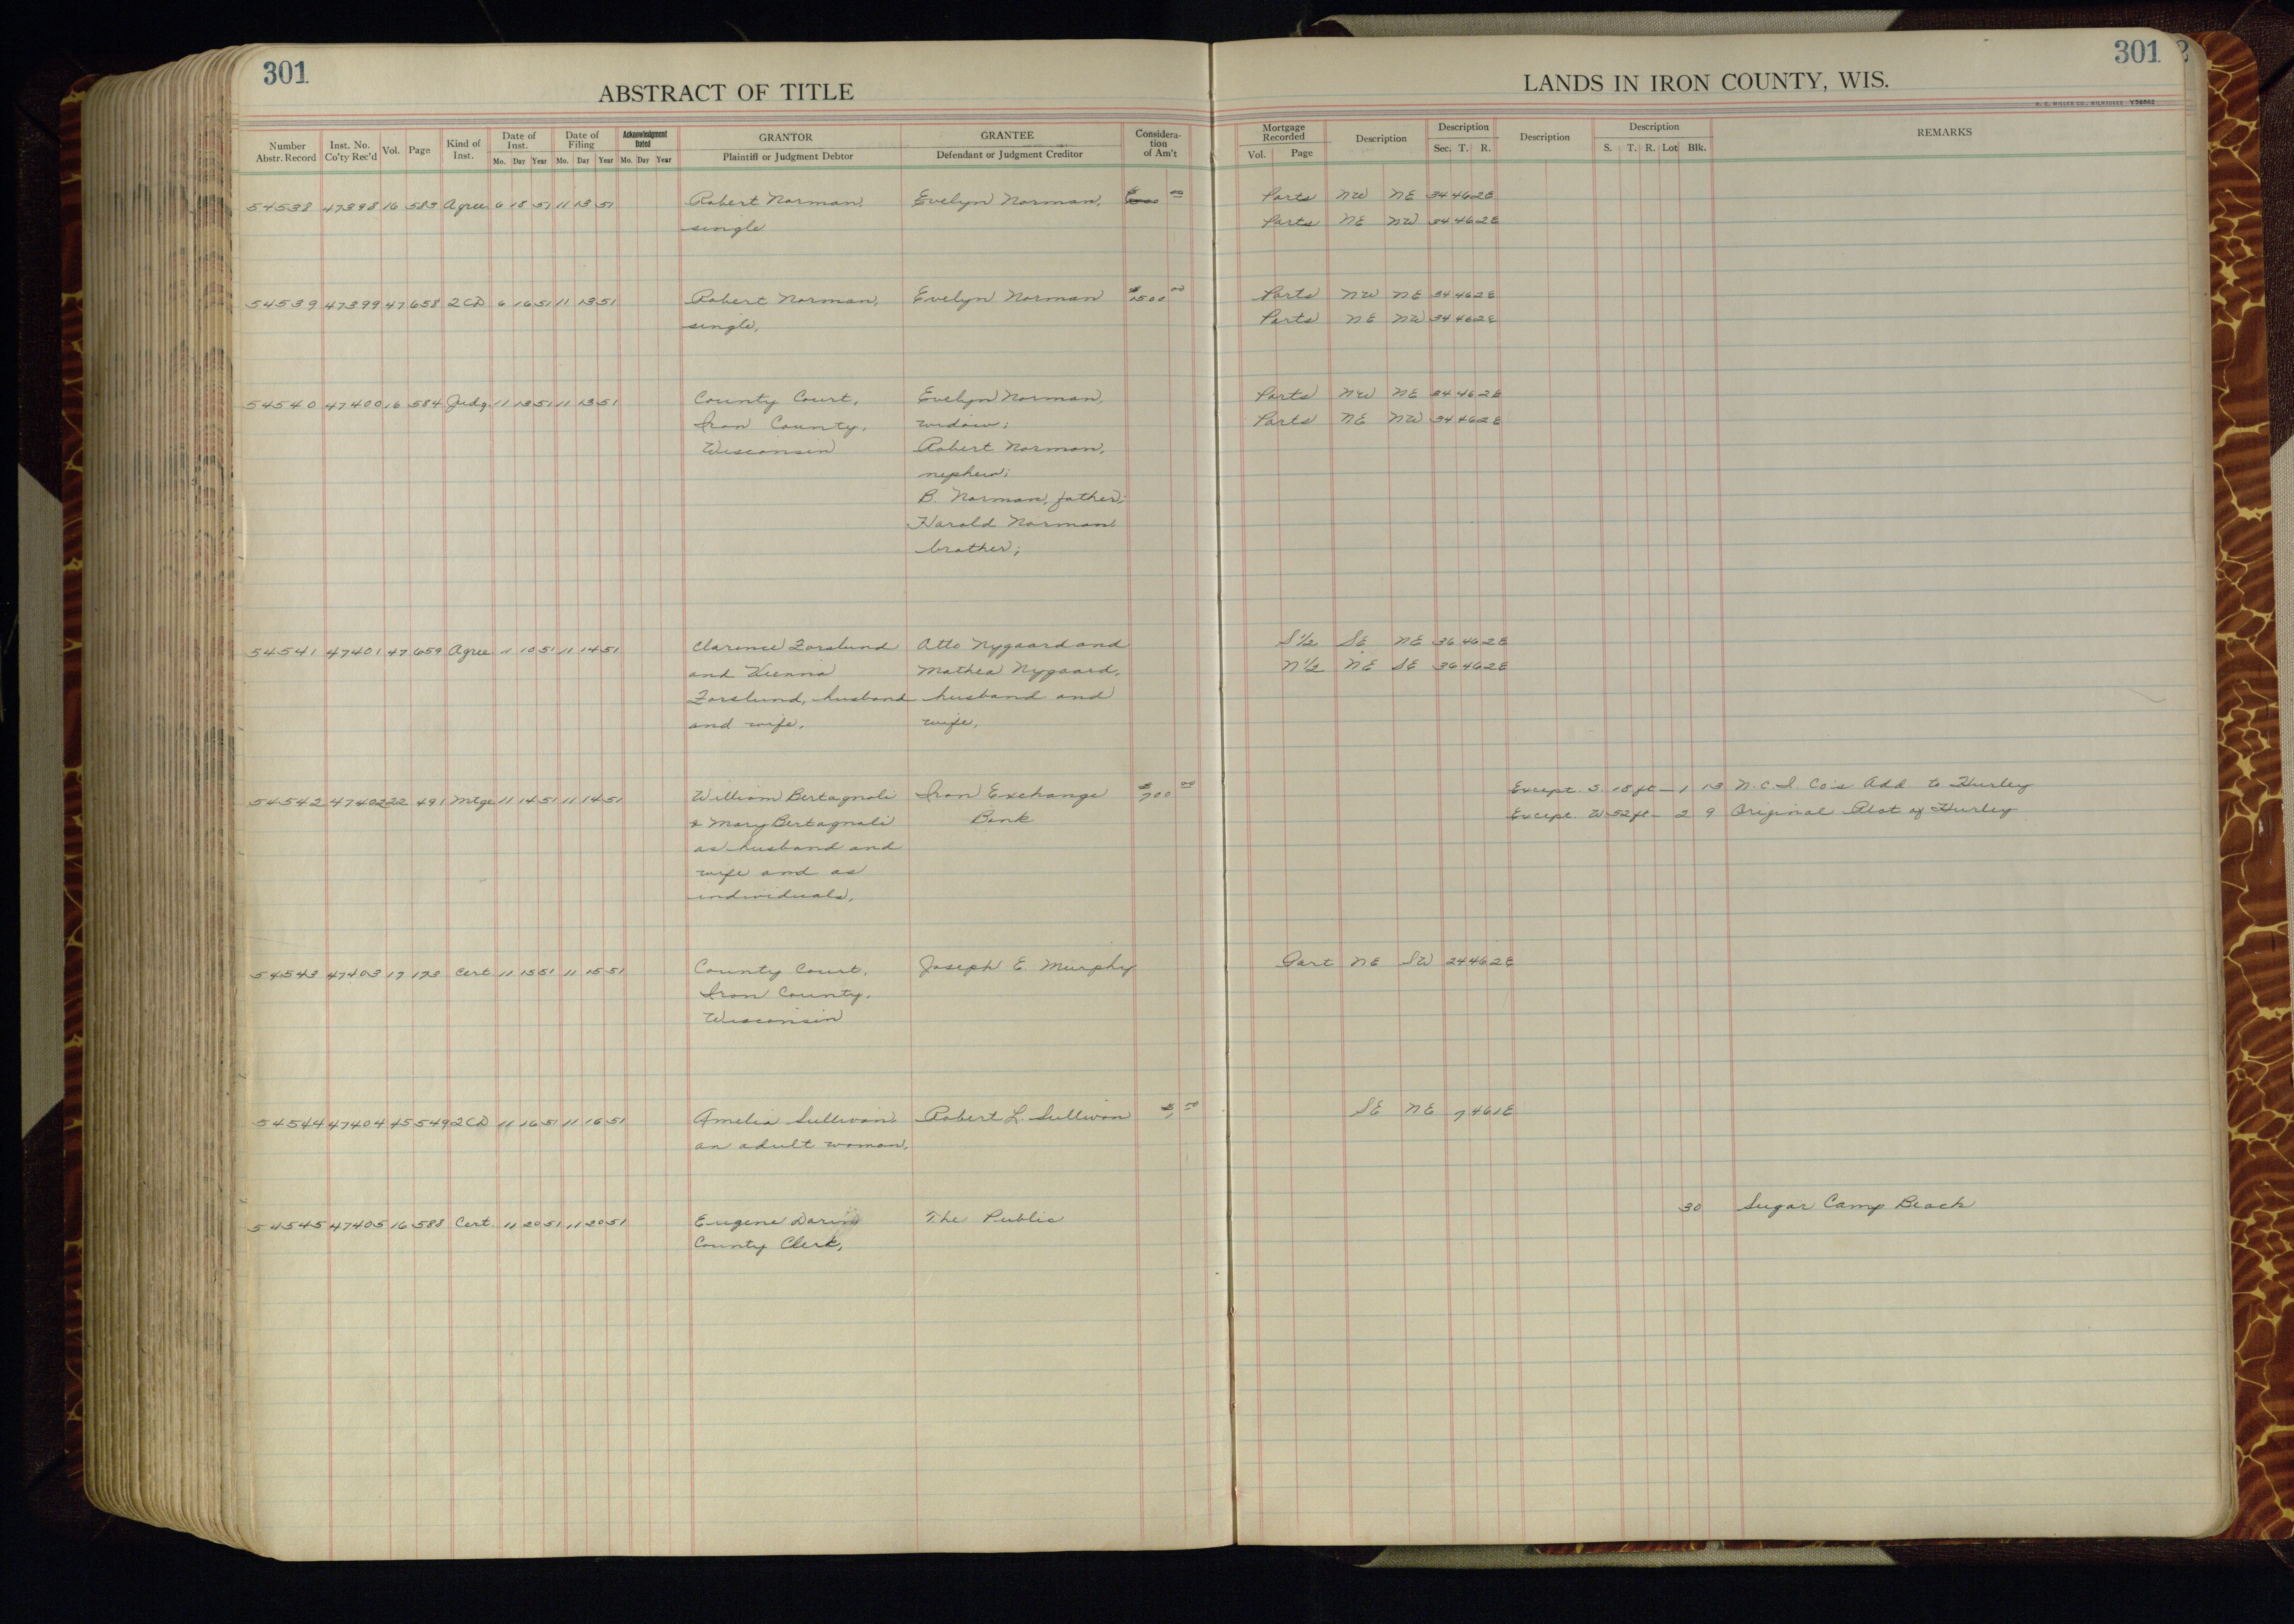 301
ABSTRACT OF TITLE
301
LANDS IN IRON COUNTY, WIS.
H. C. MILLER CO., MILWAUKEE Y38602
Number Abstr. Record | Inst. No. Co'ty Rec'd | Vol. | Page | Kind of Inst. | Date of Inst. Mo. Day Year | Date of Filing Mo. Day Year | Acknowledgment Dated Mo. Day Year | GRANTOR Plaintiff or Judgment Debtor | GRANTEE Defendant or Judgment Creditor | Consideration of Am't | Mortgage Recorded Vol. Page | Description | Description Sec. T. R. | Description | Description S. T. R. Lot Blk. | REMARKS
54538 47398 16 583 Agree 6 18 51 11 13 51 Robert Norman, Evelyn Norman, 00 Parts NW NE 34 46 2E
single Parts NE NW 34 46 2E
54539 47399 47 658 2CD 6 16 51 11 13 51 Robert Norman, Evelyn Norman $1500 00 Parts NW NE 34 46 2E
single, Parts NE NW 34 46 2E
54540 47400 16 584 Judg. 11 13 51 11 13 51 County Court, Evelyn Norman, Parts NW NE 34 46 2E
Iron County, widow; Parts NE NW 34 46 2E
Wisconsin Robert Norman,
nephew;
B. Norman, father;
Harold Norman
brother;
54541 47401 47 659 Agree 11 10 51 11 14 51 Clarence Forslund Otto Nygaard and S 1/2 SE NE 36 46 2E
and Vienna Mathea Nygaard, N 1/2 NE SE 36 46 2E
Forslund, husband husband and
and wife, wife,
54542 47402 22 491 Mtge 11 14 51 11 14 51 William Bertagnoli Iron Exchange $700 00 Except S. 18 ft — 1 13 N.C.I. Co's Add to Hurley
& Mary Bertagnoli Bank Except W 52 ft — 2 9 Original Plat of Hurley
as husband and
wife and as
individuals,
54543 47403 17 173 Cert. 11 15 51 11 15 51 County Court, Joseph E. Murphy Part NE SW 24 46 2E
Iron County,
Wisconsin
54544 47404 45 549 2CD 11 16 51 11 16 51 Amelia Sullivan, Robert L. Sullivan $1 00 SE NE 7 46 1E
an adult woman,
54545 47405 16 588 Cert. 11 20 51 11 20 51 Eugene Darin The Public 30 Sugar Camp Beach
County Clerk,